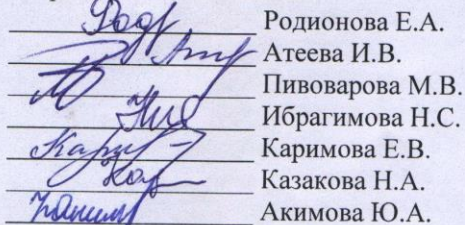 Родионова Е.А.
Атеева И.В.
Пивоварова М.В.
Ибрагимова Н.С.
Каримова Е.В.
Казакова Н.А.
Акимова Ю.А.